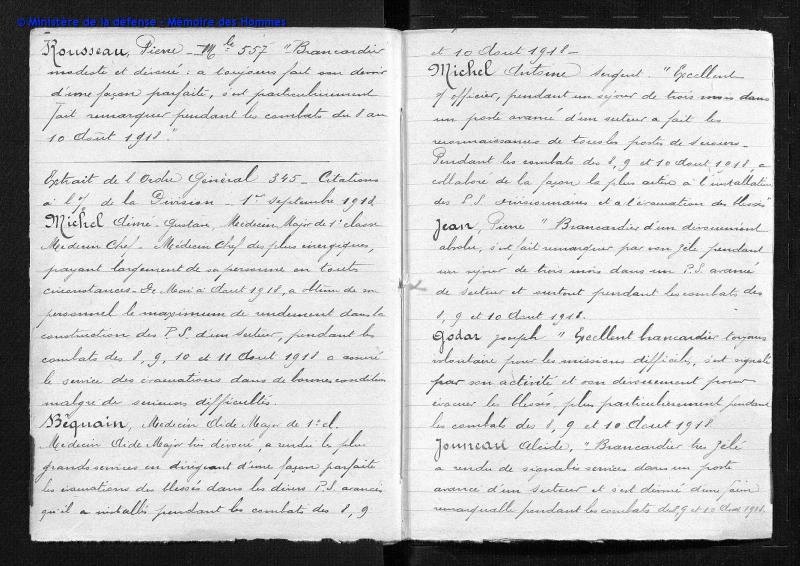 © Ministère de la défense - Mémoire des Hommes
Rousseau, Pierre - Mle 557 "Brancardier
modeste et dévoué : a toujours fait son devoir
d'une façon parfaite, s'est particulièrement
fait remarquer pendant les combats du 8 au
10 Août 1918".
Extrait de l'Ordre Général 345 - Citations
à l'O/ de la Division - 1er Septembre 1918
Michel Aimé - Gustave, Médecin Major de 1° classe
Médecin Chef - Médecin Chef des plus énergiques,
payant largement de sa personne en toutes
circonstances - De Mai à Août 1918, a obtenu de son
personnel le maximum de rendement dans la
construction des P.S. d'un secteur, pendant les
combats des 8, 9, 10 et 11 Août 1918 a assuré
le service des évacuations dans de bonnes conditions
malgré de sérieuses difficultés.
Béquain, Médecin Aide Major de 1° cl.
Médecin Aide Major très dévoué, a rendu les plus
grands services en dirigeant d'une façon parfaite
les évacuations des blessés dans les divers P.S. avancés
qu'il a installés pendant les combats des 8, 9
et 10 Août 1918 -
Michel Antoine Sergent. "Excellent
s/ officier, pendant un séjour de trois mois dans
un poste avancé d'un secteur a fait les
reconnaissances de tous les postes de secours -
Pendant les combats des 8, 9 et 10 Août 1918, a
collaboré de la façon la plus active à l'installation
des P.S. divisionnaires et à l'évacuation des blessés"
Jean, Pierre "Brancardier d'un dévouement
absolu, s'est fait remarquer par son zèle pendant
un séjour de trois mois dans un P.S. avancé
de secteur et surtout pendant les combats des
8, 9 et 10 Août 1918.
Godar Joseph "Excellent brancardier toujours
volontaire pour les missions difficiles, s'est signalé
par son activité et son dévouement pour
évacuer les blessés plus particulièrement pendant
les combats des 8, 9 et 10 Août 1918.
Jouneau Alcide, "Brancardier très zélé
a rendu de signalés services dans un poste
avancé d'un secteur et s'est dévoué d'une façon
remarquable pendant les combats des 8, 9 et 10 Août 1918.